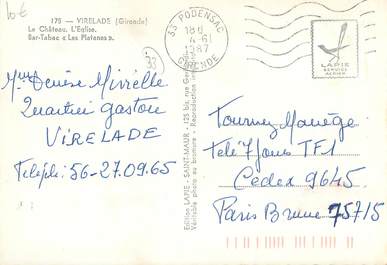 10€
175 - VIRELADE (Gironde)
Le Château. L'Eglise.
Bar-Tabac « Les Platanes ».
33
33 PODENSAC
18H
1987
GIRONDE
LAPIE
SERVICE
AERIEN
Mme Denise Mirelle
Quartier gaston
VIRELADE
Téléph: 56-27.09.65
Edition LAPIE - SAINT-MAUR - 125 bis, rue
Véritable photo au bromure - Reproduction
Tournez Manège
Télé 7 Jours TF1
Cedex 9645
Paris Brune 75715